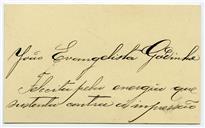 João Evangelista Godinho
Felicita pela energia que
sustenta contra a imprensa